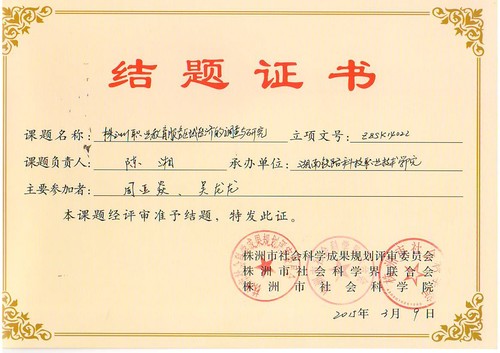 结题证书
课题名称：株洲职业教育服务区域经济的调查与研究 立项文号：ZZSK14022
课题负责人：陈湘 承办单位：湖南铁路科技职业技术学院
主要参加者：周孟焱、吴龙龙
本课题经评审准予结题，特发此证。
株洲市社会科学成果规划评审委员会
株洲市社会科学界联合会
株洲市社会科学院
2015年3月9日